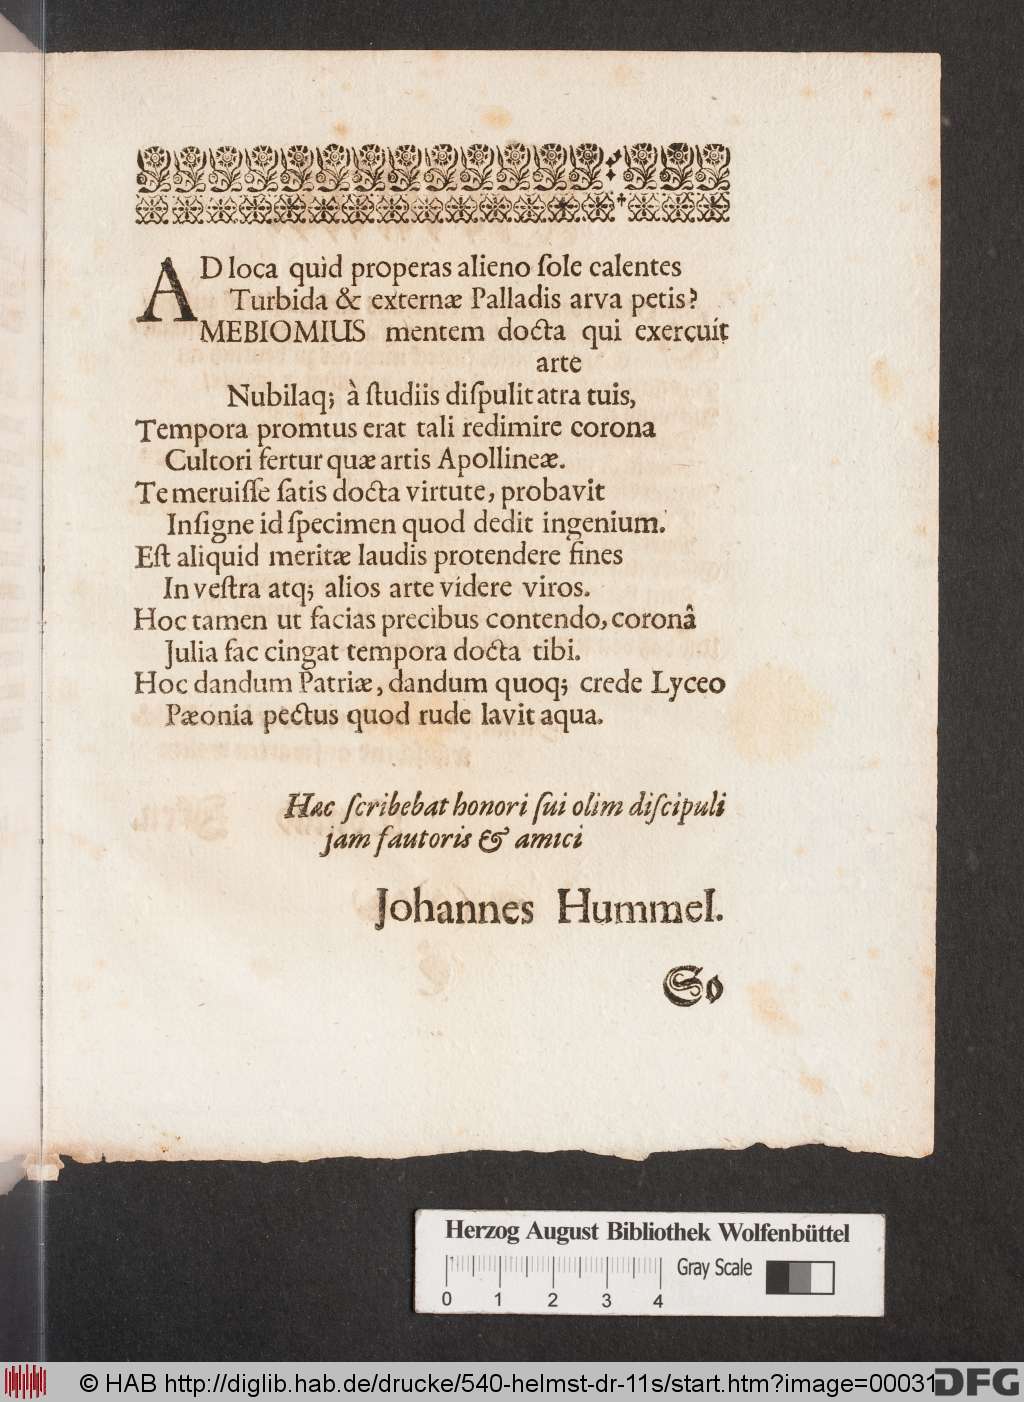 AD loca quìd properas alieno ſole calentes
Turbida & externæ Palladis arva petis?
MEBIOMIUS mentem docta qui exercuit
arte
Nubilaq; à ſtudiis diſpulit atra tuis,
Tempora promtus erat tali redimire corona
Cultori fertur quæ artis Apollineæ.
Te meruiſſe ſatis docta virtute, probavit
Inſigne id ſpecimen quod dedit ingenium.
Eſt aliquid meritæ laudis protendere fines
In veſtra atq; alios arte videre viros.
Hoc tamen ut facias precibus contendo, coronâ
Julia fac cingat tempora docta tibi.
Hoc dandum Patriæ, dandum quoq; crede Lyceo
Pæonia pectus quod rude lavit aqua.
Hæc ſcribebat honori ſui olim diſcipuli
jam fautoris & amici
Johannes Hummel.
So
Herzog August Bibliothek Wolfenbüttel
Gray Scale
0 1 2 3 4
© HAB http://diglib.hab.de/drucke/540-helmst-dr-11s/start.htm?image=00031
DFG